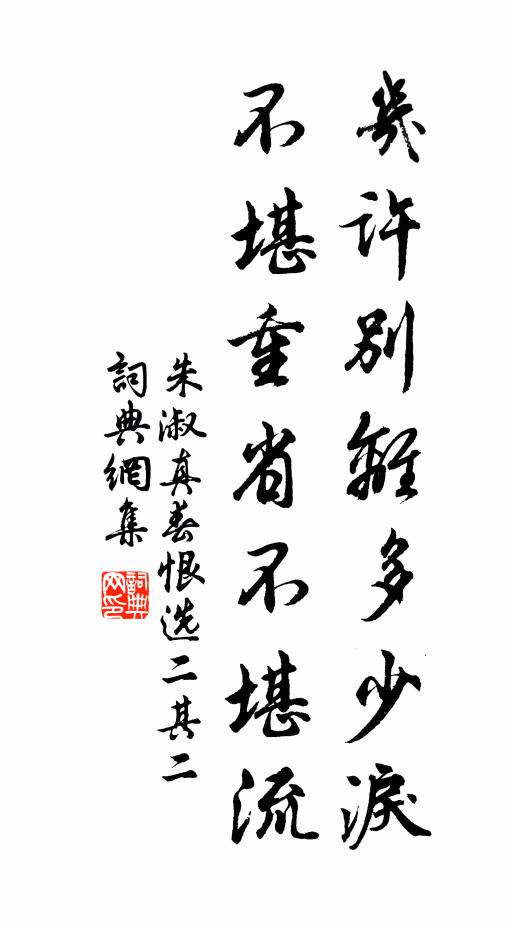 幾許別離多少淚
不堪重省不堪流
朱淑真春恨选二其二
詞典網集
詞典网印